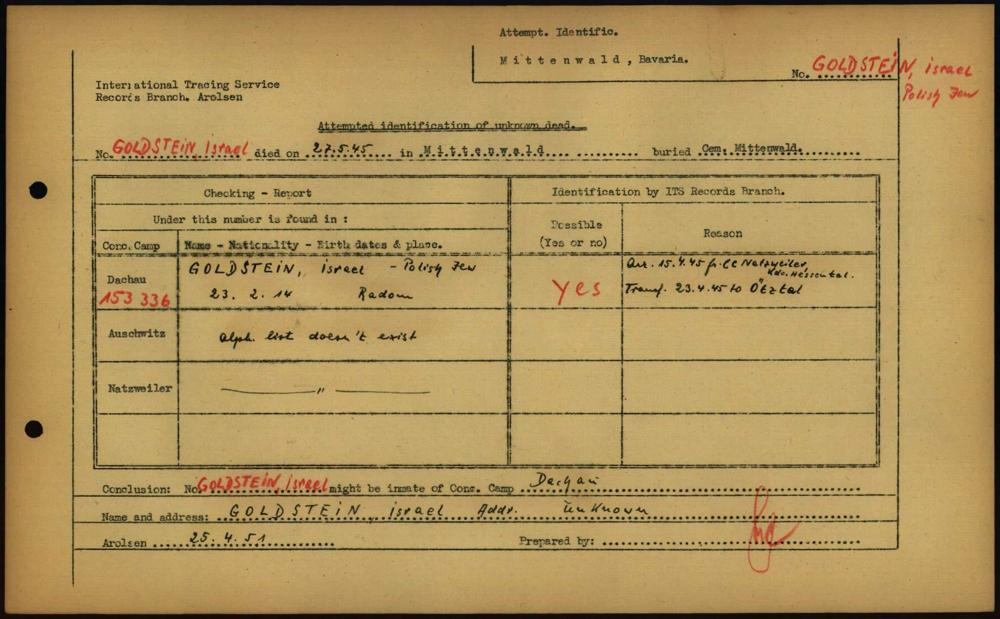 Attempt. Identific.
Mittenwald, Bavaria.
No. GOLDSTEIN, israel
Polish Jew
International Tracing Service
Records Branch. Arolsen
Attempted identification of unknown dead.
No. GOLDSTEIN, Israel died on 27.5.45 in Mittenwald buried Cem. Mittenwald.
Checking - Report
Identification by ITS Records Branch.
Under this number is found in :
Possible
(Yes or no)
Reason
Conc. Camp
Name - Nationality - Birth dates & place.
Dachau
153 336
GOLDSTEIN, israel - Polish Jew
23. 2. 14 Radom
yes
Arr. 15.4.45 fr. CC Natzweiler
Kdo. Hessental.
Transf. 23.4.45 to Ötztal
Auschwitz
alph. list doesn't exist
Natzweiler
— " —
Conclusion: No. GOLDSTEIN, israel might be inmate of Conc. Camp Dachau
Name and address: GOLDSTEIN, israel Addr. unknown
Arolsen 25.4.51
Prepared by: